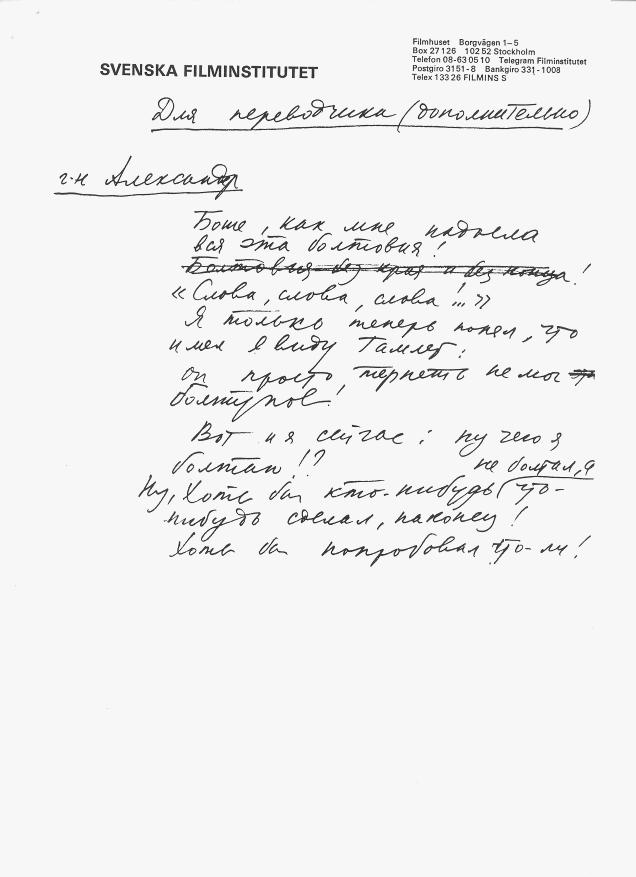 SVENSKA FILMINSTITUTET
Filmhuset Borgvägen 1–5
Box 27 126 102 52 Stockholm
Telefon 08-63 05 10 Telegram Filminstitutet
Postgiro 31 51 - 8 Bankgiro 331 - 1008
Telex 133 26 FILMINS S
Для переводчика (дополнительно)
г-н Александр
Боже, как мне надоела
вся эта болтовня!
Болтовня без края и без конца!
«Слова, слова, слова!..»
Я только теперь понял, что
имел в виду Гамлет:
он просто терпеть не мог
болтунов!
Вот и я сейчас: ну чего я
болтаю!?
Ну, Хоть бы кто-нибудь не болтал, а что-
нибудь сделал, наконец!
Хоть бы попробовал что-ли!